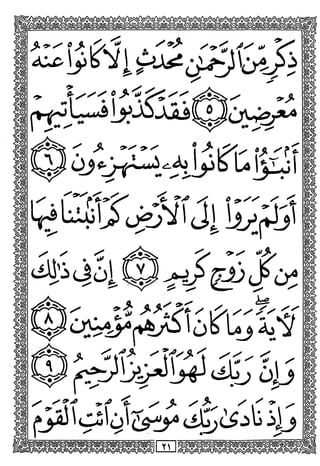 ذِكْرٍ مِّنَ ٱلرَّحْمَٰنِ مُحْدَثٍ إِلَّا كَانُوا۟ عَنْهُ
مُعْرِضِينَ ٥ فَقَدْ كَذَّبُوا۟ فَسَيَأْتِيهِمْ
أَنۢبَٰٓؤُا۟ مَا كَانُوا۟ بِهِۦ يَسْتَهْزِءُونَ ٦
أَوَلَمْ يَرَوْا۟ إِلَى ٱلْأَرْضِ كَمْ أَنۢبَتْنَا فِيهَا
مِن كُلِّ زَوْجٍ كَرِيمٍ ٧ إِنَّ فِى ذَٰلِكَ
لَءَايَةً ۖ وَمَا كَانَ أَكْثَرُهُم مُّؤْمِنِينَ ٨
وَإِنَّ رَبَّكَ لَهُوَ ٱلْعَزِيزُ ٱلرَّحِيمُ ٩
وَإِذْ نَادَىٰ رَبُّكَ مُوسَىٰٓ أَنِ ٱئْتِ ٱلْقَوْمَ
٢١